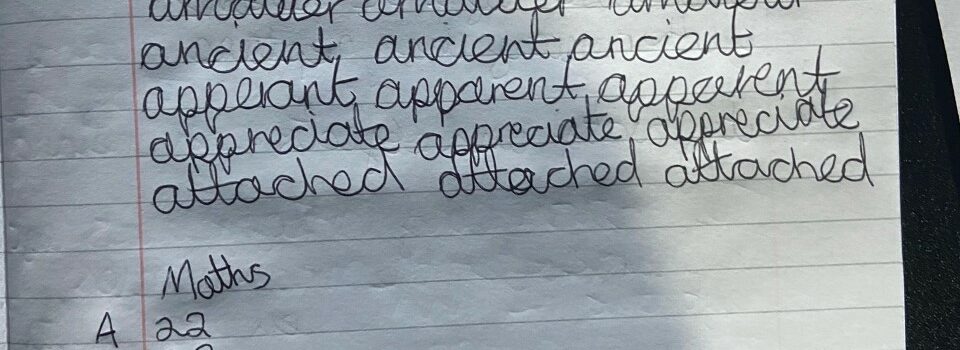 ancient, ancient, ancient
apperant, apparent, apparent
appreciate appreciate, appreciate
attached attached attached
Maths
A 22